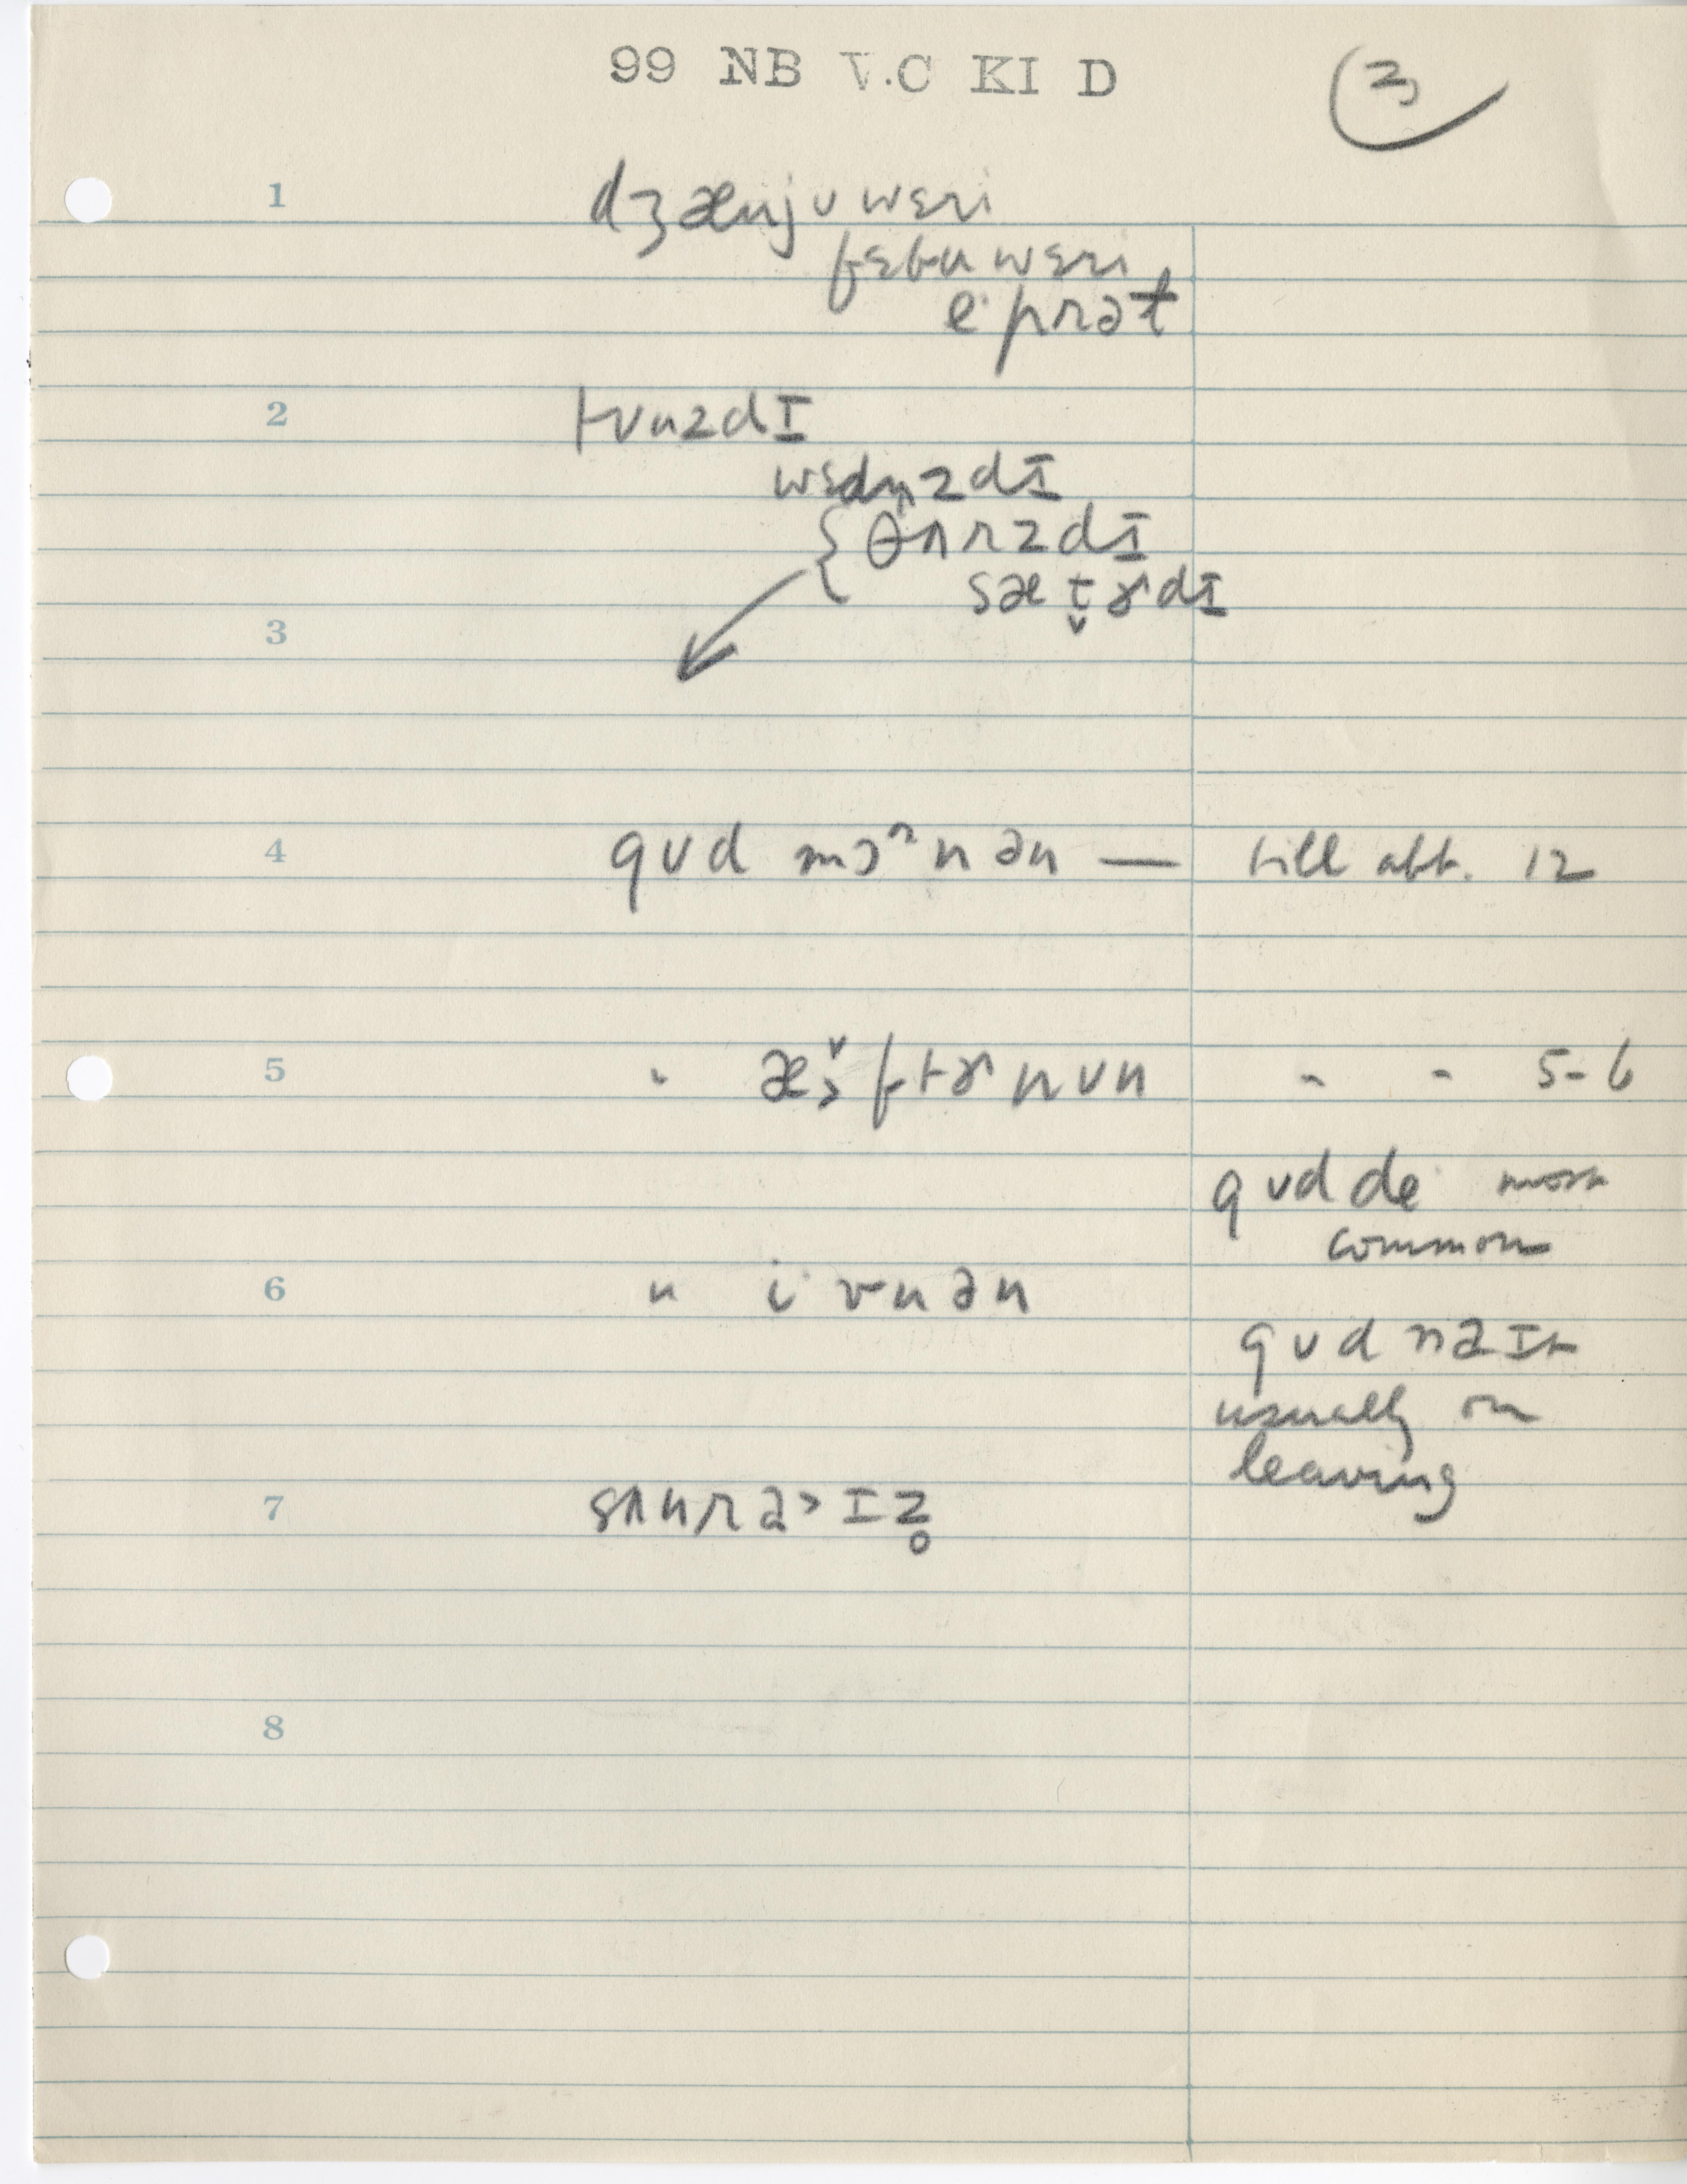 99 NB V.C KI D
3
1 dʒænjʊwɛri
fɛbuwɛri
eˑprəɫ
2 tʊuzdɪ
wɛdnzdɪ
{ θʌrzdɪ
sæt̬ɚdɪ
3
4 gʊd mɔʳnən — till abt. 12
5 " æftɚnʊn " " 5-6
gʊd deˑ more
common
6 " iˑvnən
gʊd naɪt
usually on
leaving
7 sʌnra˃ɪz̥
8